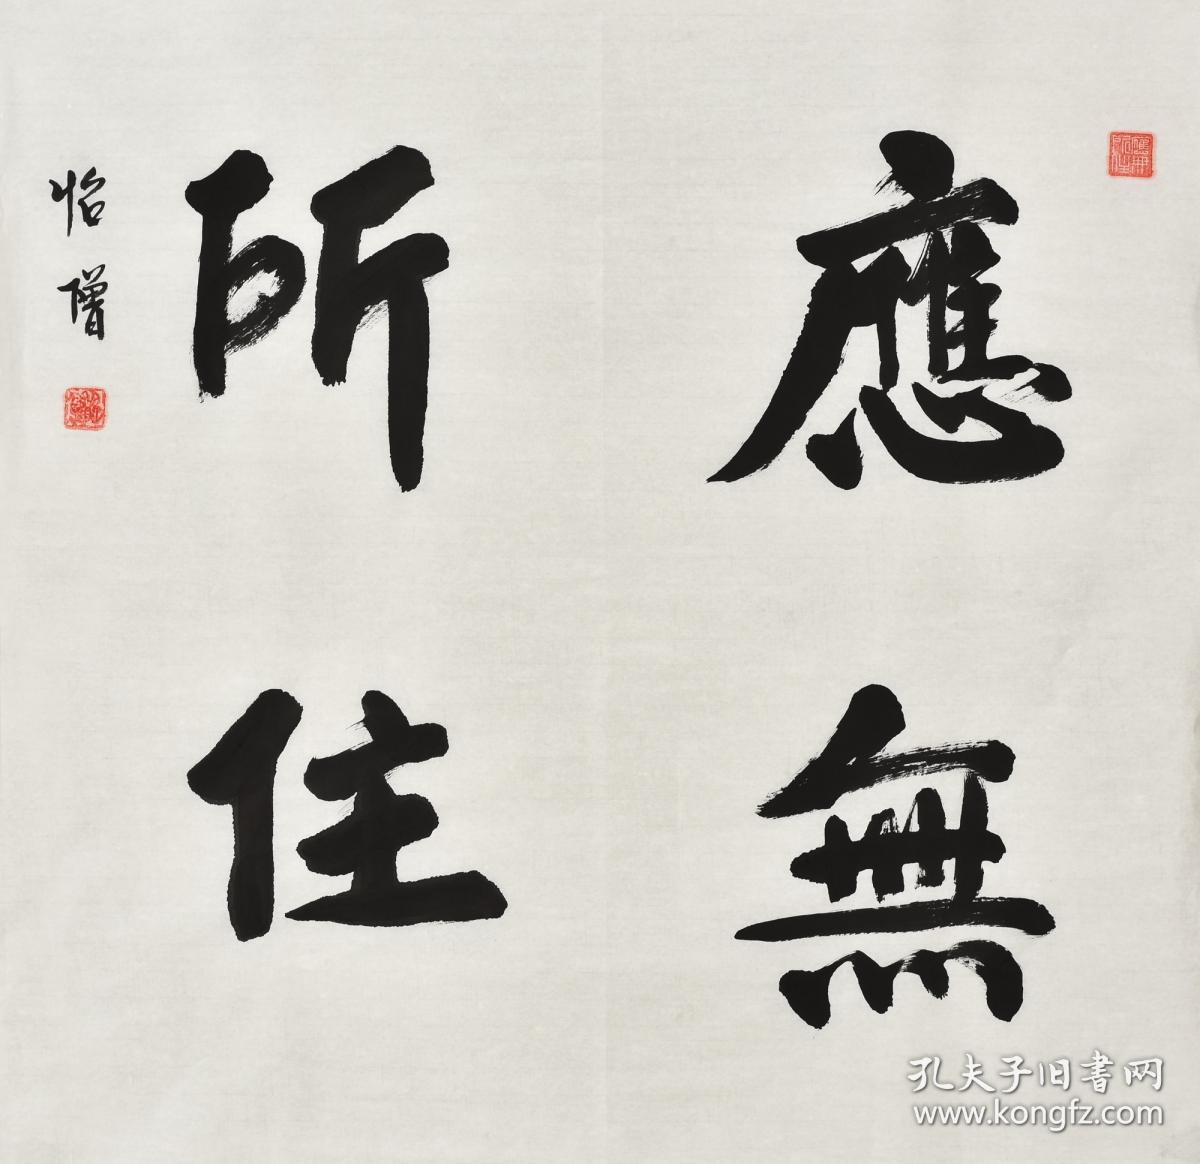 應無
所住
怡
應無
所住
孔夫子旧書网
www.kongfz.com